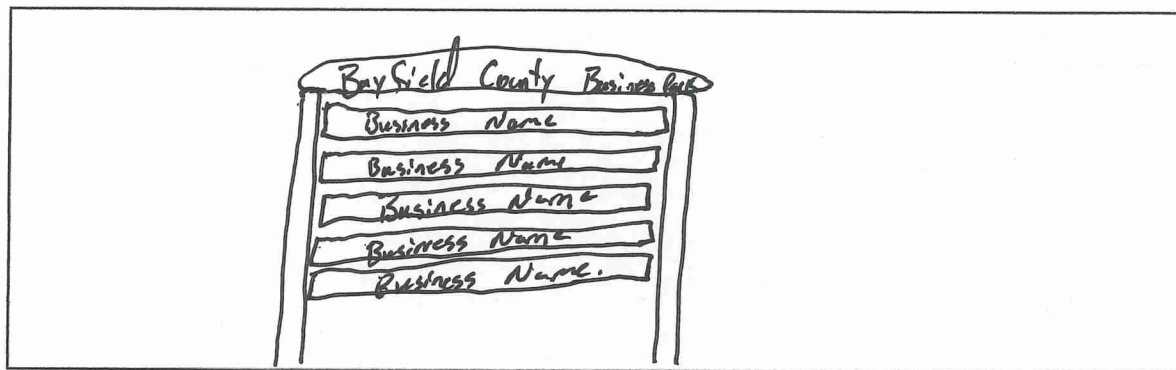 Bayfield County Business Park
Business Name
Business Name
Business Name
Business Name
Business Name.